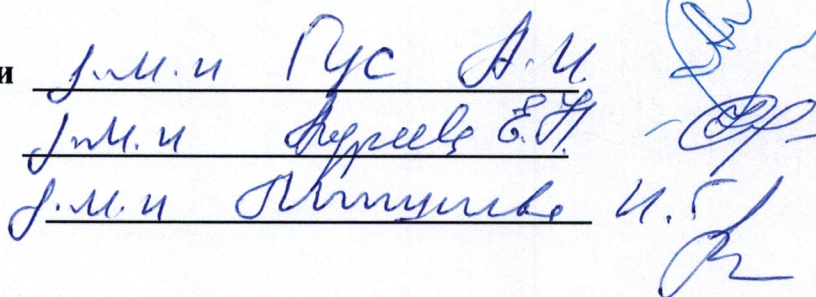 и д.м.н Гус А.И.
д.м.н Андреева Е.Н.
д.м.н И.Г.